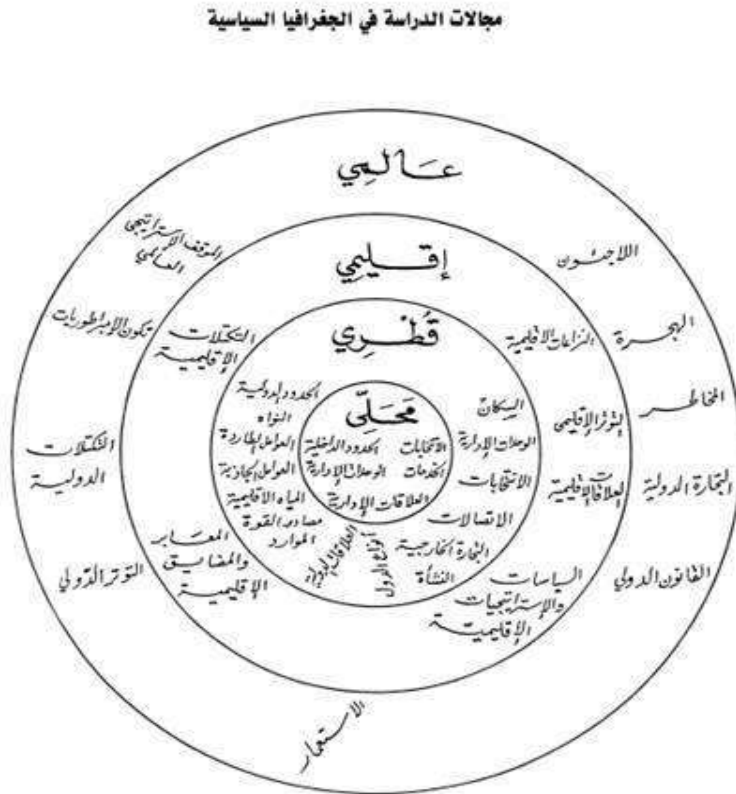 مجالات الدراسة في الجغرافيا السياسية
عالمي
اللاجئون
الهجرة
المخاطر
التجارة الدولية
القانون الدولي
الاستعمار
التوتر الدولي
التكتلات
الدولية
تكون الإمبراطوريات
الموقف الاستراتيجي
العالمي
إقليمي
النزاعات الاقليمية
التوتر الإقليمي
العلاقات الإقليمية
السياسات
والإستراتيجيات
الإقليمية
المعابر
والمضايق
الإقليمية
التكتلات
الإقليمية
قُطْري
السكان
الوحدات الإدارية
الانتخابات
الاتصالات
التجارة الخارجية
النشأة
أنواع الدول
العلاقات الدولية
مصادر القوة
الموارد
المياه الاقليمية
العوامل الجاذبة
العوامل الطاردة
النواه
الحدود الدولية
مَحَلّي
الانتخابات
الحدود الداخلية
الخدمات
الوحدات الإدارية
العلاقات الإدارية